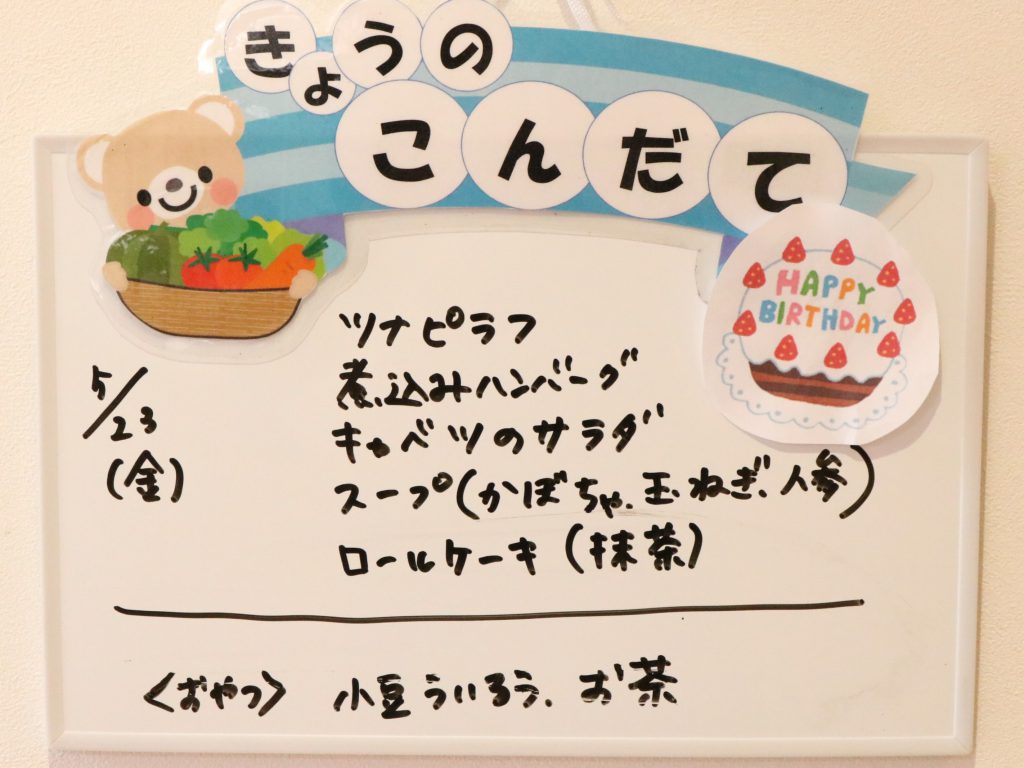 きょうの
こんだて
HAPPY
BIRTHDAY
5/23
(金)
ツナピラフ
煮込みハンバーグ
キャベツのサラダ
スープ(かぼちゃ、玉ねぎ、人参)
ロールケーキ(抹茶)
〈おやつ〉 小豆ういろう、お茶